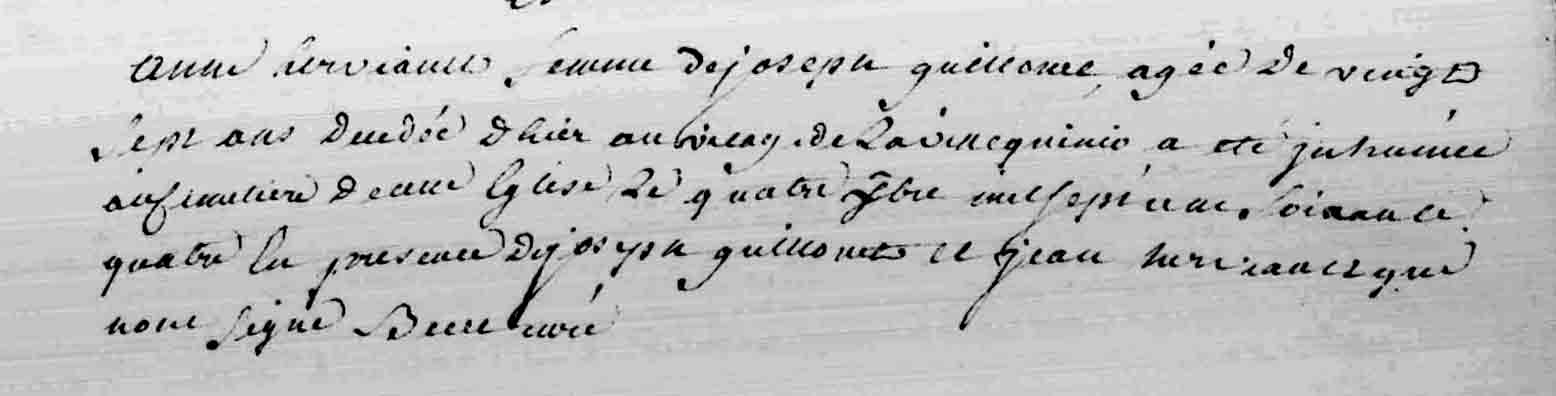 anne serviance femme de joseph guillome, agée de vingt
sept ans decedée d hier au de a eté jnhumée
au simetiere de cette Eglise le quatre 9bre mil sept cent soixante
quatre En presence de joseph guillome et jean serviance qui
nont signé curé